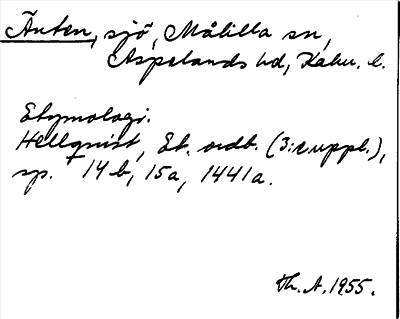 Änten, sjö, Målilla sn,
Aspelands hd, Kalm. l.
Etymologi.
Hellquist, Et. ordb. (3:e uppl.),
sp. 14b, 15a, 1441a.
Th. A. 1955.